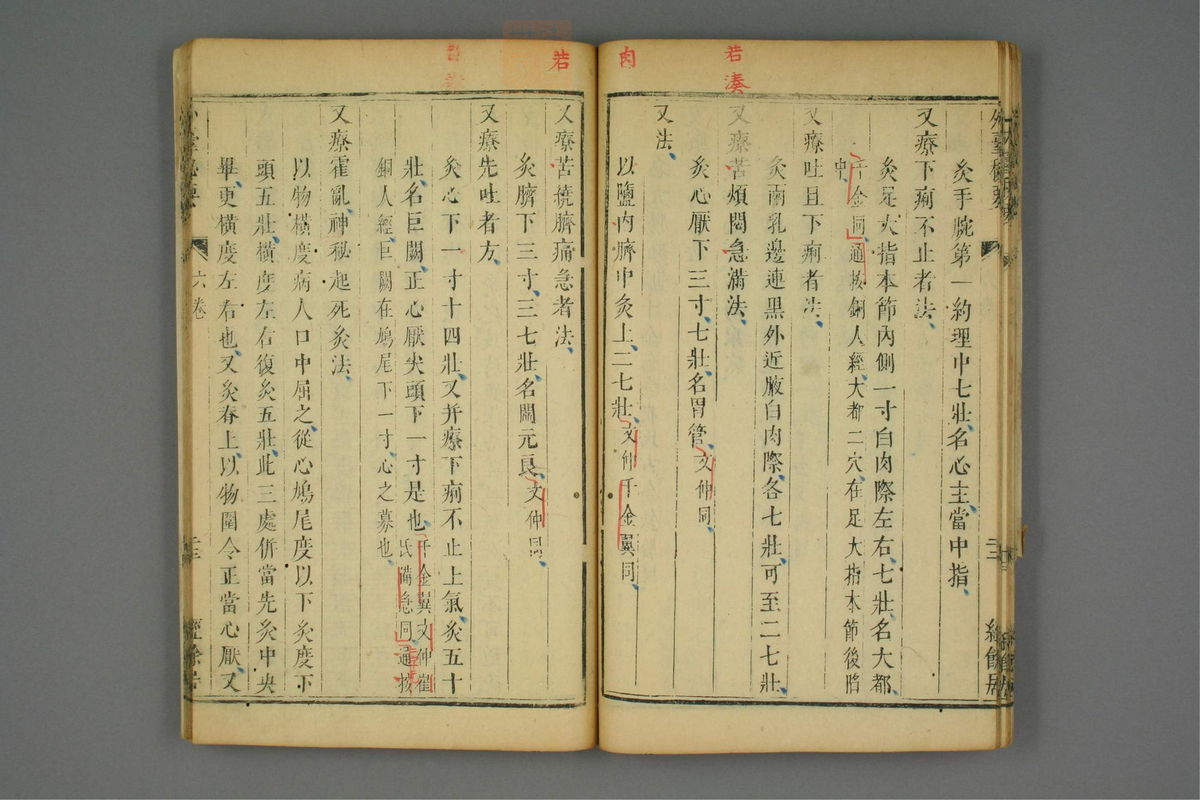 若湊
肉
外臺秘要
灸手腕第一約理中七壯名心主當中指
又療下痢不止者法
灸足大指本節內側一寸白肉際左右七壯名大都
千金同通按銅人經大都二穴在足大指本節後陷
中
又療吐且下痢者法
灸兩乳邊連黑外近腋白肉際各七壯可至二七壯
又療苦煩悶急滿法
灸心厭下三寸七壯名胃管文仲同
又法
以鹽內臍中灸上二七壯文仲千金翼同
若
又療苦繞臍痛急者法
灸臍下三寸三七壯名關元良文仲同
又療先吐者方
灸心下一寸十四壯又并療下痢不止上氣灸五十
壯名巨闕正心厭尖頭下一寸是也千金翼文仲崔
氏備急同通按
銅人經巨闕在鳩尾下一寸心之募也
又療霍亂神秘起死灸法
以物橫度病人口中屈之從心鳩尾度以下灸度下
頭五壯橫度左右復灸五壯此三處併當先灸中央
畢更橫度左右也又灸脊上以物圍令正當心厭又
外臺秘要
六卷
經餘居